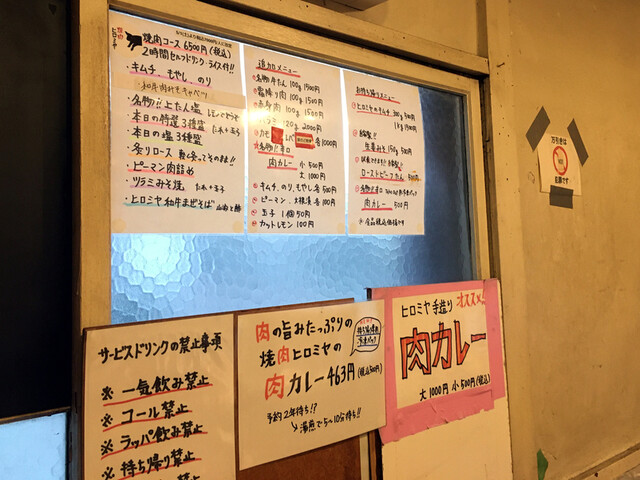 焼肉コース 6500円(税込)
2時間セルフドリンク・ライス付!!
・キムチ、もやし、のり
・和牛肉みそキャベツ
・名物!!上たん塩
・本日の特選3種盛 たれ+玉子
・本日の塩3種盛
・炙りロース
・ピーマン肉詰め
・ツラミみそ焼 たれ+玉子
・ヒロミヤ和牛まぜそば
追加メニュー
名物牛たん 100g 1500円
霜降り肉 100g 1500円
赤身肉 100g 1500円
120g 2000円
各1000円
肉カレー 小 500円
大 1000円
キムチ、のり、もやし 各500円
ピーマン、大根葉 各100円
玉子 1個50円
カットレモン 100円
お持ち帰りメニュー
ヒロミヤのキムチ 300g 500円
1kg 1500円
150g 500円
ローストビーフ
肉カレー 500円
万引きは
犯罪です
サービスドリンクの禁止事項
※ 一気飲み禁止
※ コール禁止
※ ラッパ飲み禁止
※ 持ち帰り禁止
肉の旨みたっぷりの
焼肉ヒロミヤの
肉カレー463円(税込500円)
予約2年待ち!?
↓湯煎で5〜10分待ち!!
ヒロミヤ手造り オススメ!
肉カレー
大1000円 小500円(税込)